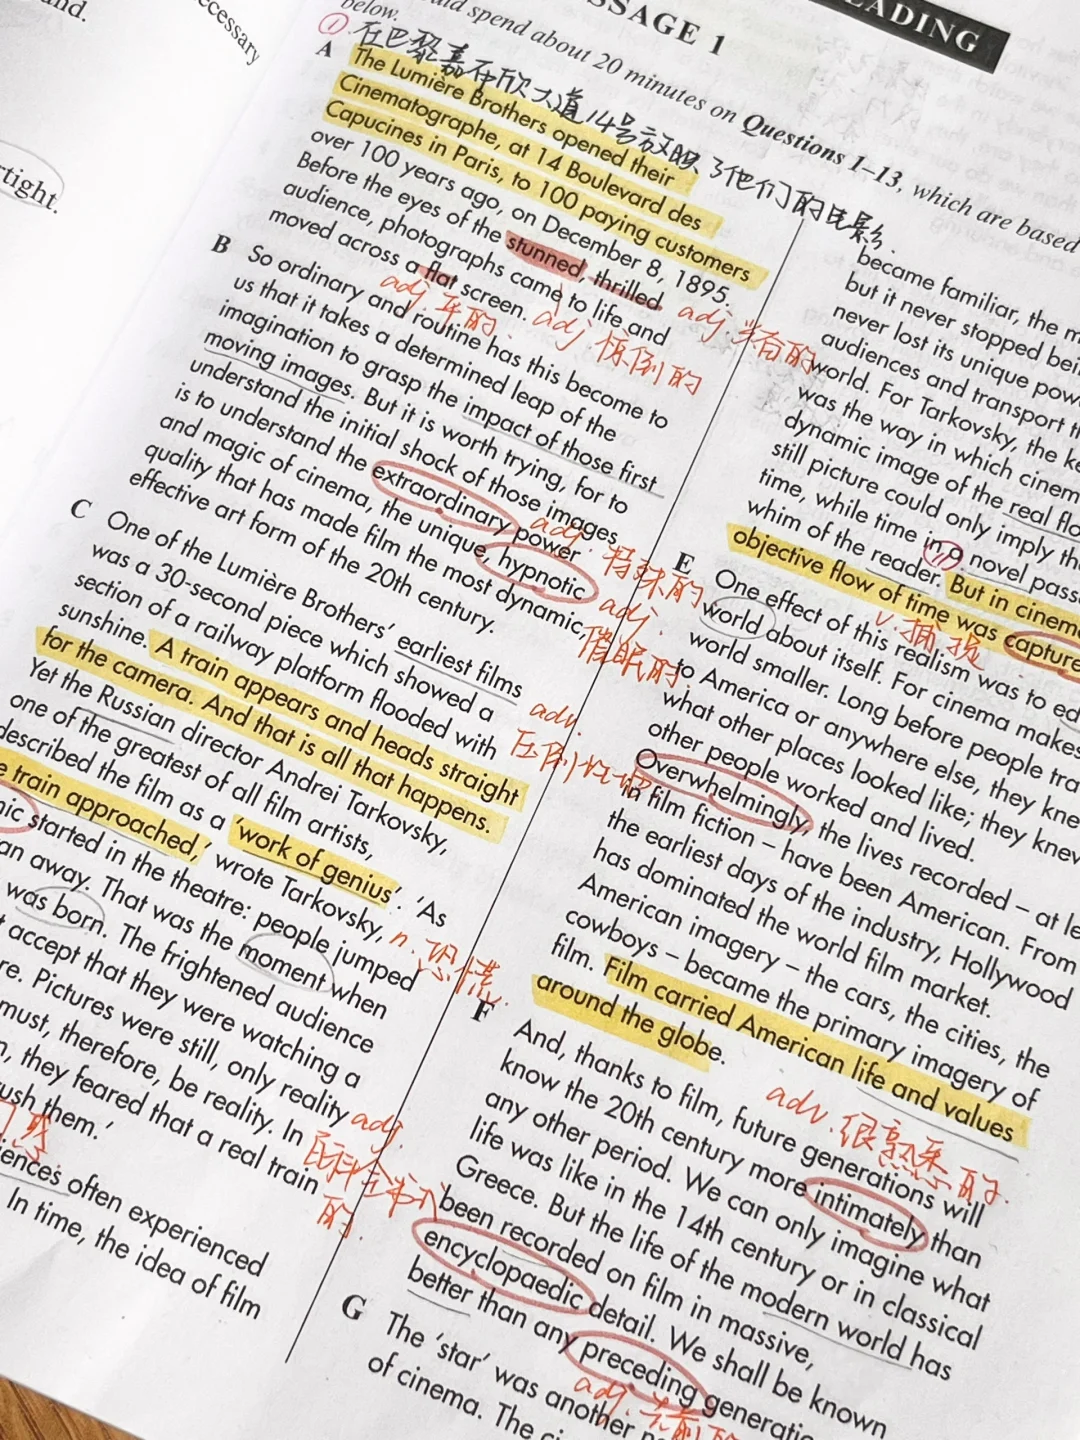 nd.
ecessary
rtight.
SSAGE 1
EADING
uld spend about 20 minutes on Questions 1–13, which are based
below.
① 在巴黎嘉布欣大道14号放映了他们的电影.
A The Lumière Brothers opened their
Cinematographe, at 14 Boulevard des
Capucines in Paris, to 100 paying customers
over 100 years ago, on December 8, 1895.
Before the eyes of the stunned, thrilled
audience, photographs came to life and
moved across a flat screen.
adj. 平的.
adj 惊倒的
adj.
B So ordinary and routine has this become to
us that it takes a determined leap of the
imagination to grasp the impact of those first
moving images. But it is worth trying, for to
understand the initial shock of those images
is to understand the extraordinary power
and magic of cinema, the unique, hypnotic
quality that has made film the most dynamic,
effective art form of the 20th century.
adj. 特殊的
adj.
催眠的
C One of the Lumière Brothers' earliest films
was a 30-second piece which showed a
section of a railway platform flooded with
sunshine. A train appears and heads straight
for the camera. And that is all that happens.
Yet the Russian director Andrei Tarkovsky,
one of the greatest of all film artists,
described the film as a 'work of genius'. 'As
e train approached,' wrote Tarkovsky,
nic started in the theatre: people jumped
an away. That was the moment when
was born. The frightened audience
t accept that they were watching a
re. Pictures were still, only reality
must, therefore, be reality. In
n, they feared that a real train
ush them.'
adv.
n. 恐慌.
adj.
百科全书式
的.
iences often experienced
In time, the idea of film
became familiar, the m
but it never stopped bein
never lost its unique powe
audiences and transport th
world. For Tarkovsky, the ke
was the way in which cinem
dynamic image of the real flo
still picture could only imply th
time, while time in a novel passe
whim of the reader. But in cinema
objective flow of time was capture
v. 捕捉
E One effect of this realism was to ed
world about itself. For cinema makes
world smaller. Long before people tra
to America or anywhere else, they knew
what other places looked like; they knew
other people worked and lived.
Overwhelmingly, the lives recorded – at le
in film fiction – have been American. From
the earliest days of the industry, Hollywood
has dominated the world film market.
American imagery – the cars, the cities, the
cowboys – became the primary imagery of
film. Film carried American life and values
around the globe.
adv. 很熟悉的.
F And, thanks to film, future generations will
know the 20th century more intimately than
any other period. We can only imagine what
life was like in the 14th century or in classical
Greece. But the life of the modern world has
been recorded on film in massive,
encyclopaedic detail. We shall be known
better than any preceding generatio
adj. 先前的
G The 'star' was another
of cinema. The ci